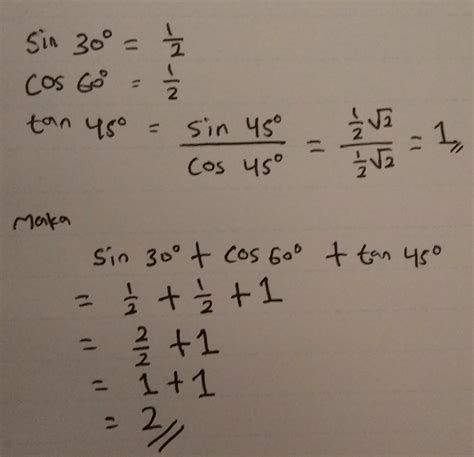 sin 30° = 1/2
cos 60° = 1/2
tan 45° = sin 45°/cos 45° = (1/2 √2)/(1/2 √2) = 1//
Maka
sin 30° + cos 60° + tan 45°
= 1/2 + 1/2 + 1
= 2/2 + 1
= 1 + 1
= 2//